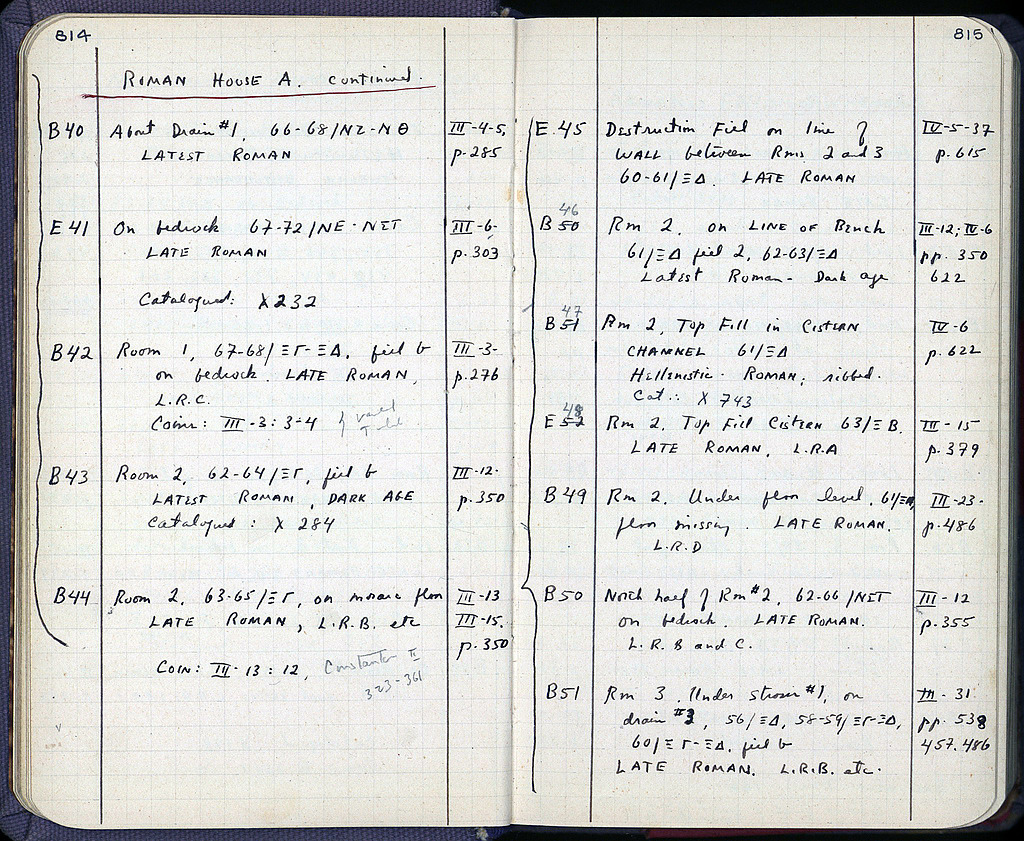 814
ROMAN HOUSE A. continued.
B40 About Drain #1, 66-68/ΝΖ-ΝΘ III-4-5,
LATEST ROMAN p-285
E41 On bedrock 67-72/ΝΕ-ΝΣΤ III-6-
LATE ROMAN p.303
Catalogued: X 232
B42 Room 1, 67-68/ΞΓ-ΞΔ, fiel b III-3-
on bedrock. LATE ROMAN, p.276
L.R.C.
Coins: III-3:3-4
B43 Room 2, 62-64/ΞΓ, fiel b III-12-
LATEST ROMAN, DARK AGE p.350
Catalogued: X 284
B44 Room 2, 63-65/ΞΓ, on mosaic floor III-13
LATE ROMAN, L.R.B. etc III-15,
p.350
COIN: III-13:12, Constantius II
323-361
815
E.45 Destruction Fiel on line of IV-5-37
WALL between Rms 2 and 3 p.615
60-61/ΞΔ. LATE ROMAN
46
B 50 Rm 2, on LINE OF Bench III-12; IV-6
61/ΞΔ fiel 2, 62-63/ΞΔ pp. 350
Latest Roman - Dark age 622
47
B 51 Rm 2, Top Fill in CISTERN IV-6
CHANNEL 61/ΞΔ p.622
Hellenistic - ROMAN; ribbed.
Cat.: X 743
48
E 52 Rm 2, Top Fiel Cistern 63/ΞΒ. III-15
LATE ROMAN, L.R.A p.379
B49 Rm 2, Under floor level, 61/ΞΔ, III-23-
floor missing. LATE ROMAN. p.486
L.R.D
B50 North half of Rm #2, 62-66/ΝΣΤ III-12
on bedrock. LATE ROMAN. p.355
L.R.B and C.
B51 Rm 3, Under stroser #1, on III-31
drain #3, 56/ΞΔ, 58-59/ΞΓ-ΞΔ, pp. 538
60/ΞΓ-ΞΔ, fiel b 457.486
LATE ROMAN. L.R.B. etc.